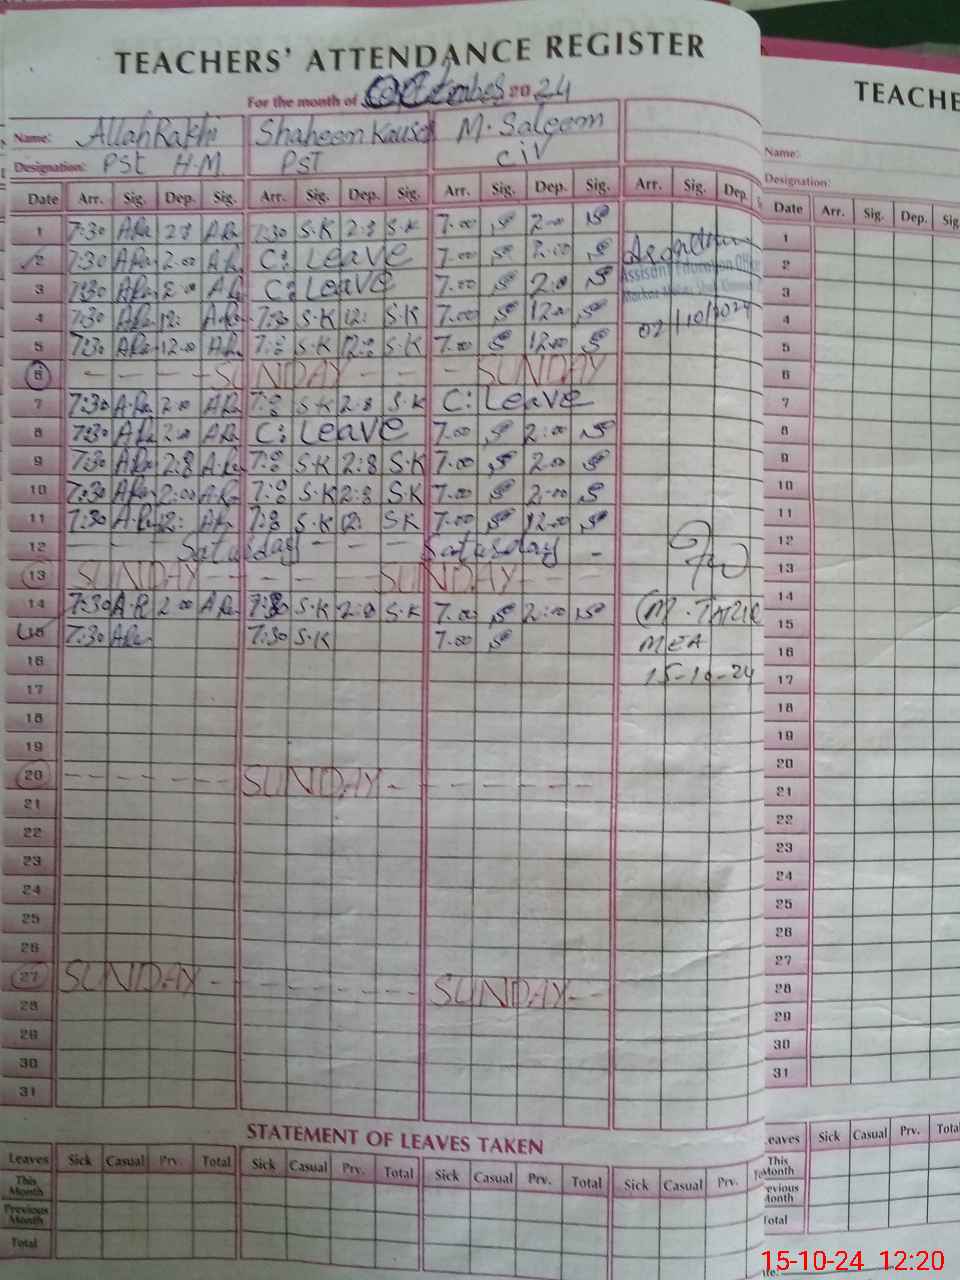 TEACHERS' ATTENDANCE REGISTER
For the month of October 2024
Name: Allah Rakhi Shaheen Kauser M. Saleem
Designation: PST H.M PST C/V
Date Arr. Sig. Dep. Sig. Arr. Sig. Dep. Sig. Arr. Sig. Dep. Sig. Arr. Sig. Dep.
1 7:30 ARa 2:8 ARa 7:30 S.K 2:8 S.K 7.00 S 2.00 S
2 7:30 ARa 2.00 AR C: Leave 7.00 S 2.00 S
3 7:30 ARa 2:0 AR C: Leave 7.00 S 2:00 S
Assistant Education Officer
4 7:30 ARa 12: ARa 7:30 S.K 12: S.K 7.00 S 12.00 S
02/10/2024
5 7:30 ARa 12.00 AR 7:8 S.K 12:8 S.K 7.00 S 12.00 S
6 - - - - SUNDAY - - - - SUNDAY
7 7:30 A.Ra 2.00 AR 7:8 S.K 2:8 S.K C: Leave
8 7:30 AR 2.00 AR C: Leave 7.00 S 2:00 S
9 7:30 ARa 2:8 A.Ra 7:8 S.K 2:8 S.K 7.00 S 2.00 S
10 7:30 ARa 2:00 AR 7:8 S.K 2:8 S.K 7.00 S 2:00 S
11 7:30 A.Ra 12: AR 7:8 S.K 12: S.K 7.00 S 12.00 S
12 - - - Saturday - - - Saturday -
13 SUNDAY - - - - SUNDAY - - -
14 7:30 A.R 2.00 ARa 7:30 S.K 2:8 S.K 7.00 S 2:00 S
(M. TARIQ
15 7:30 ARa 7:30 S.K 7.00 S
MEA
16
15-10-24
17
18
19
20 - - - - - - SUNDAY - - - - - - -
21
22
23
24
25
26
27 SUNDAY - - - - - - - - SUNDAY - -
28
29
30
31
STATEMENT OF LEAVES TAKEN
Leaves Sick Casual Prv. Total Sick Casual Prv. Total Sick Casual Prv. Total Sick Casual Prv.
This Month
Previous Month
Total
TEACHE
Name:
Designation:
Date Arr. Sig. Dep. Sig
1
2
3
4
5
6
7
8
9
10
11
12
13
14
15
16
17
18
19
20
21
22
23
24
25
26
27
28
29
30
31
eaves Sick Casual Prv. Total
This Month
evious Month
Total
15-10-24 12:20